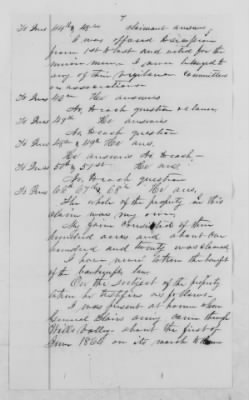 7
To Inss 44th & 45th claimant answers
I was opposed to secession
from 1st to last and voted for the
union men I never belonged to
any of the vigilance committees
or associations
To Inss 48th He answers
No, to each question & clause
To Inss 49th He answers
No to each question
To Inss 48th & 49th He ans.
He answers No to each,—
To Inss 50th & 51st He ans
No to each question
To Inss 66th 67th & 68th He ans.
The whole of the property in this
claim was my own.
My farm consisted of three
hundred acres and about one
hundred and twenty was cleared,
I have never taken the benefit
of the bankrupt law.
On the subject of the property
taken he testifies as follows.
I was present at home when
General Blairs army came through
Wills Valley about the first of
June 1864 on its march to Rome